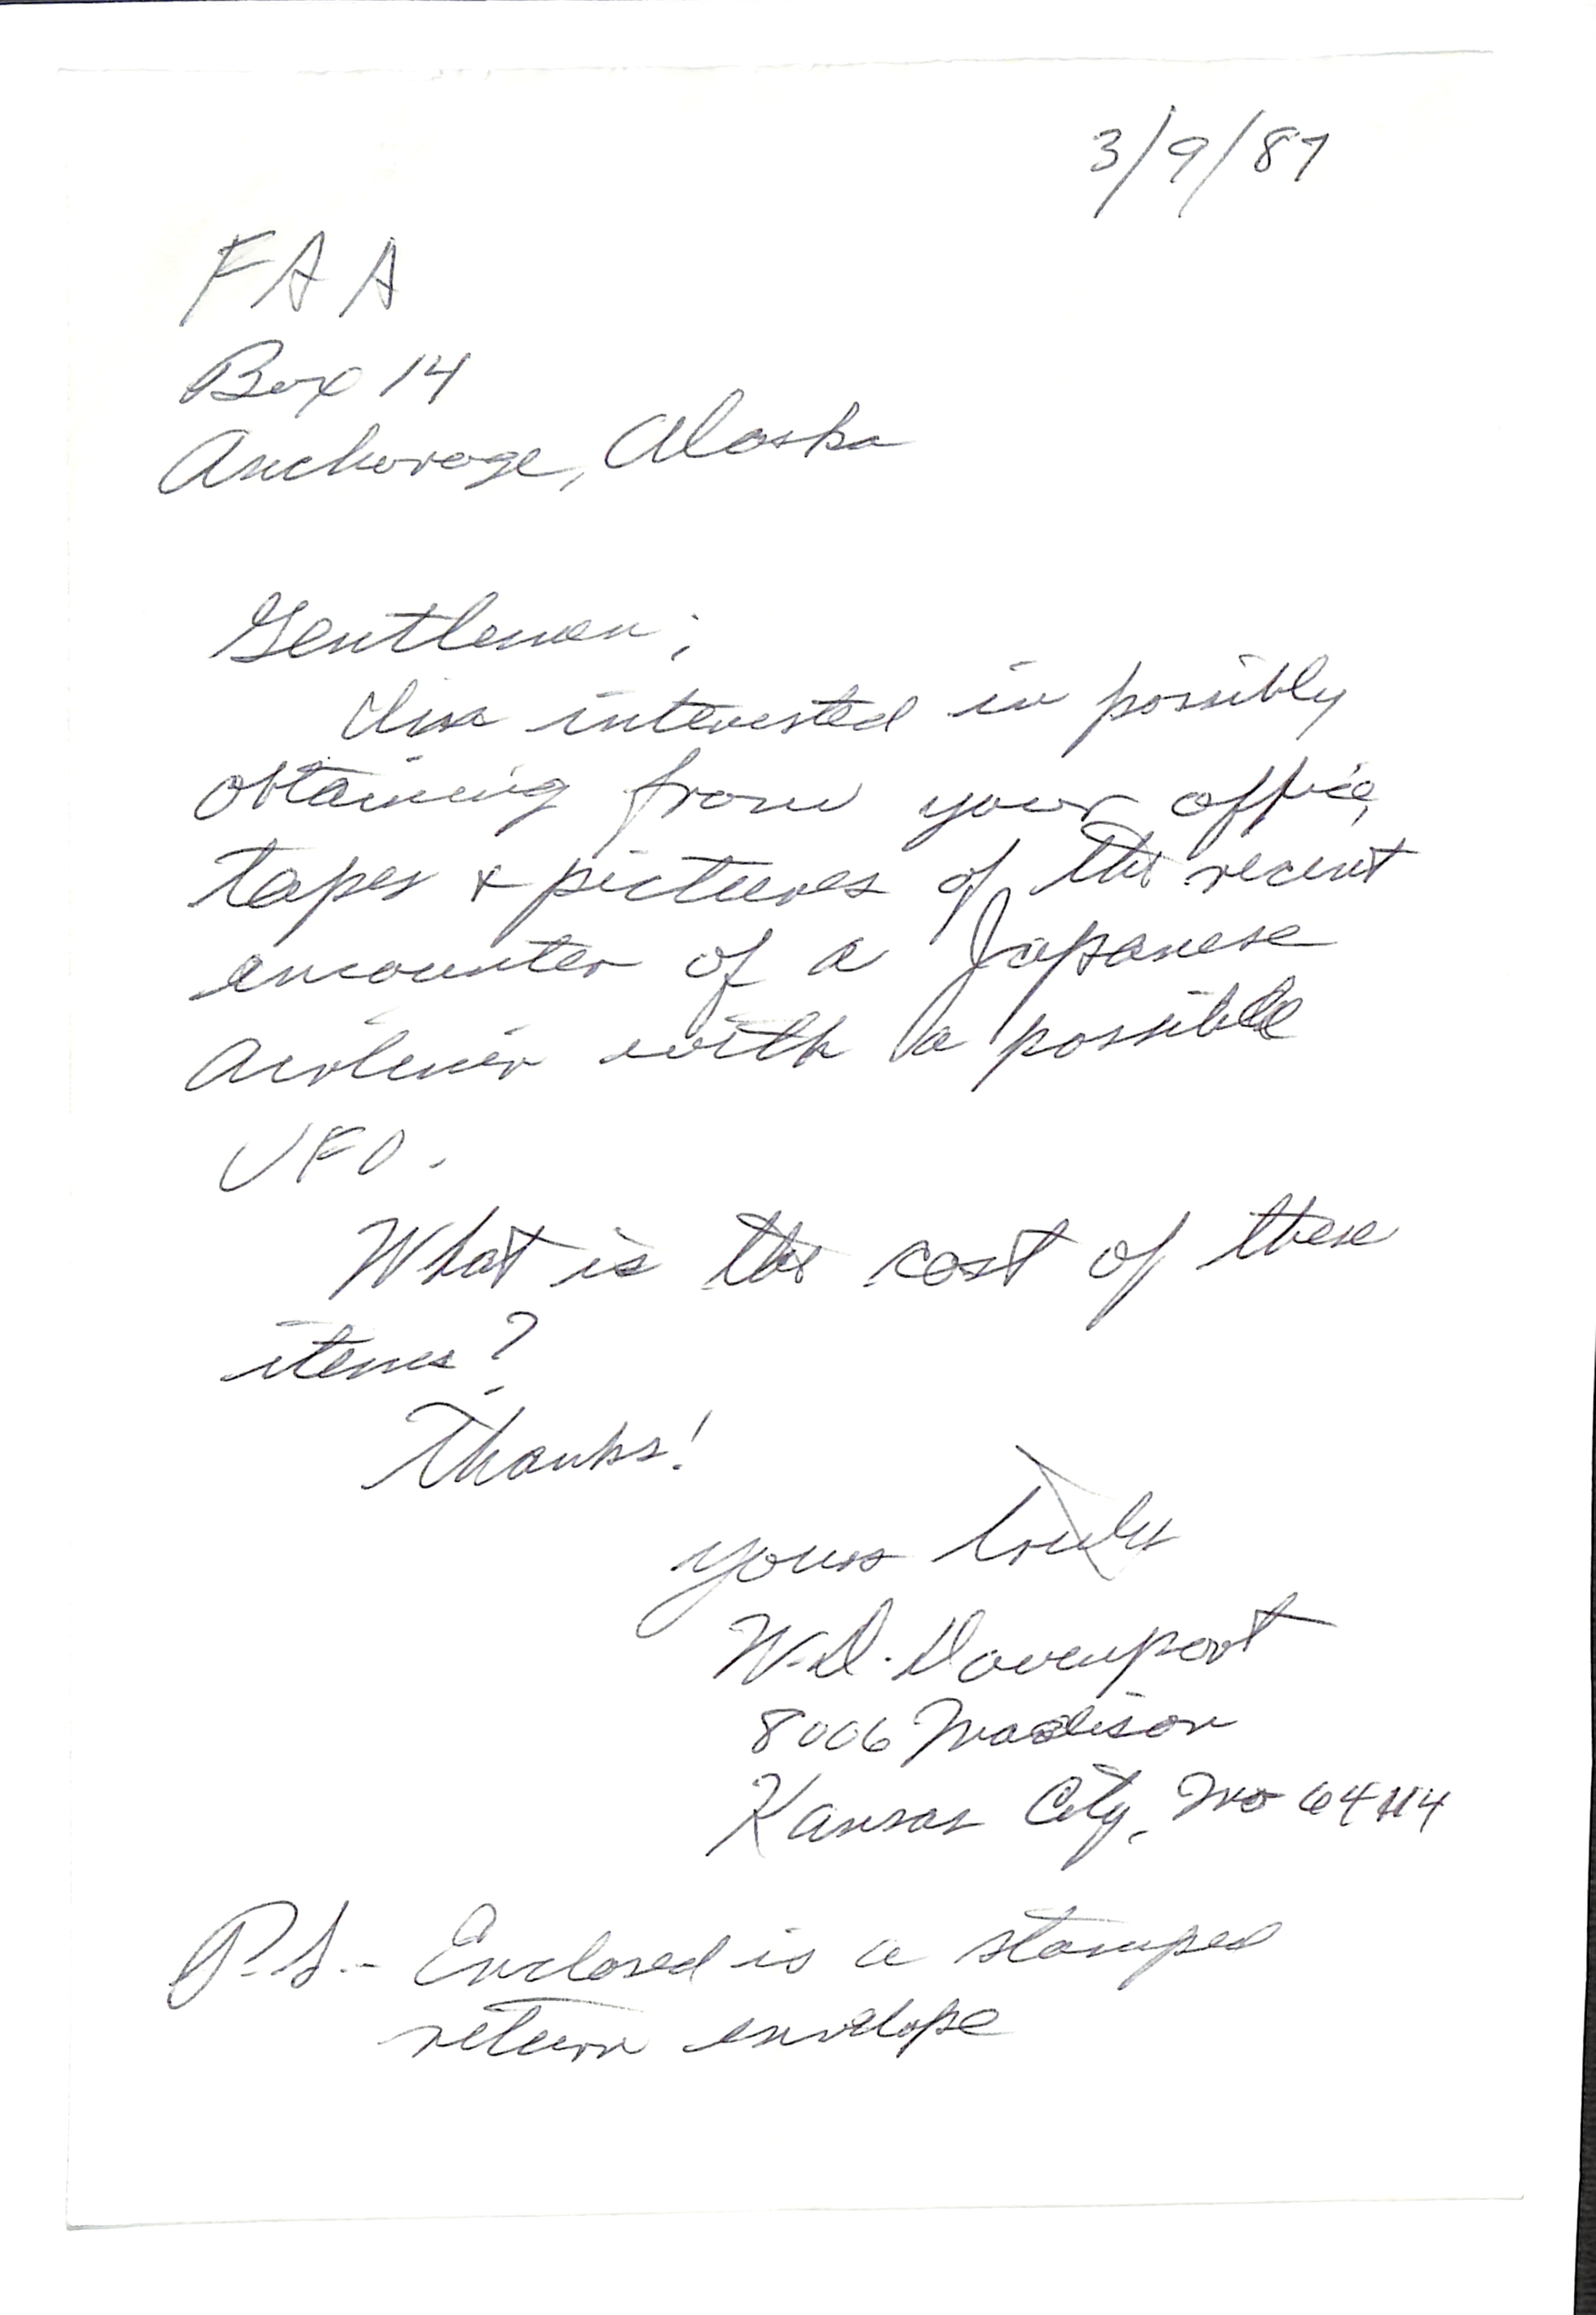 3/9/87
FAA
Box 14
Anchorage, Alaska
Gentlemen;
I'm interested in possibly
obtaining from your office,
tapes + pictures of the recent
encounter of a Japanese
airliner with a possible
UFO.
What is the cost of these
items?
Thanks!
Yours truly
W.D. Davenport
8006 Madison
Kansas City, Mo 64114
P.S. - Enclosed is a stamped
return envelope